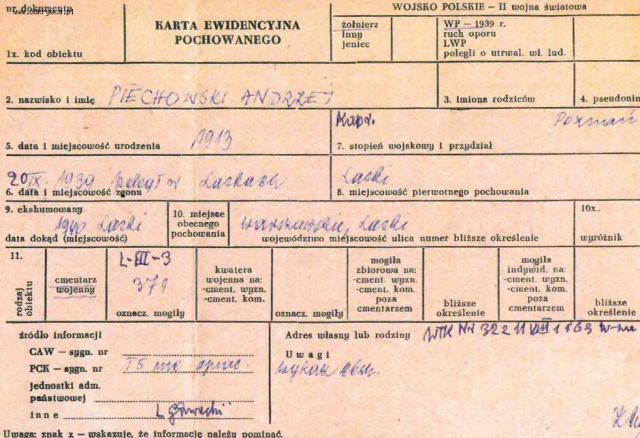 nr dokumentu
WOJSKO POLSKIE — II wojna światowa
KARTA EWIDENCYJNA
POCHOWANEGO
żołnierz
inny
jeniec
WP — 1939 r.
ruch oporu
LWP
polegli o utrwal. wł. lud.
1x. kod obiektu
2. nazwisko i imię PIECHOWSKI ANDRZEJ
3. imiona rodziców
4. pseudonim
5. data i miejscowość urodzenia 1913
Kapr. Poznań
7. stopień wojskowy i przydział
20 IX. 1939 poległ w Laskach
6. data i miejscowość zgonu
Laski
8. miejscowość pierwotnego pochowania
9. ekshumowany
1940 Laski
data dokąd (miejscowość)
10. miejsce
obecnego
pochowania
warszawskie, Laski
województwo miejscowość ulica numer bliższe określenie
10x..
wyróżnik
11.
rodzaj
obiektu
cmentarz
wojenny
L-III-3
371
oznacz. mogiły
kwatera
wojenna na:
-cment. wyzn.
-cment. kom.
oznacz. mogiły
mogiła
zbiorowa na:
-cment. wyzn.
-cment. kom.
poza
cmentarzem
bliższe
określenie
mogiła
indywid. na:
-cment. wyzn.
-cment. kom.
poza
cmentarzem
bliższe
określenie
źródło informacji
CAW — sygn. nr
PCK — sygn. nr
jednostki adm.
państwowej
inne
Adres własny lub rodziny WTK Nr 322
Uwagi
wykaz eksh.
Uwaga: znak x — wskazuje, że informację należy pominąć.